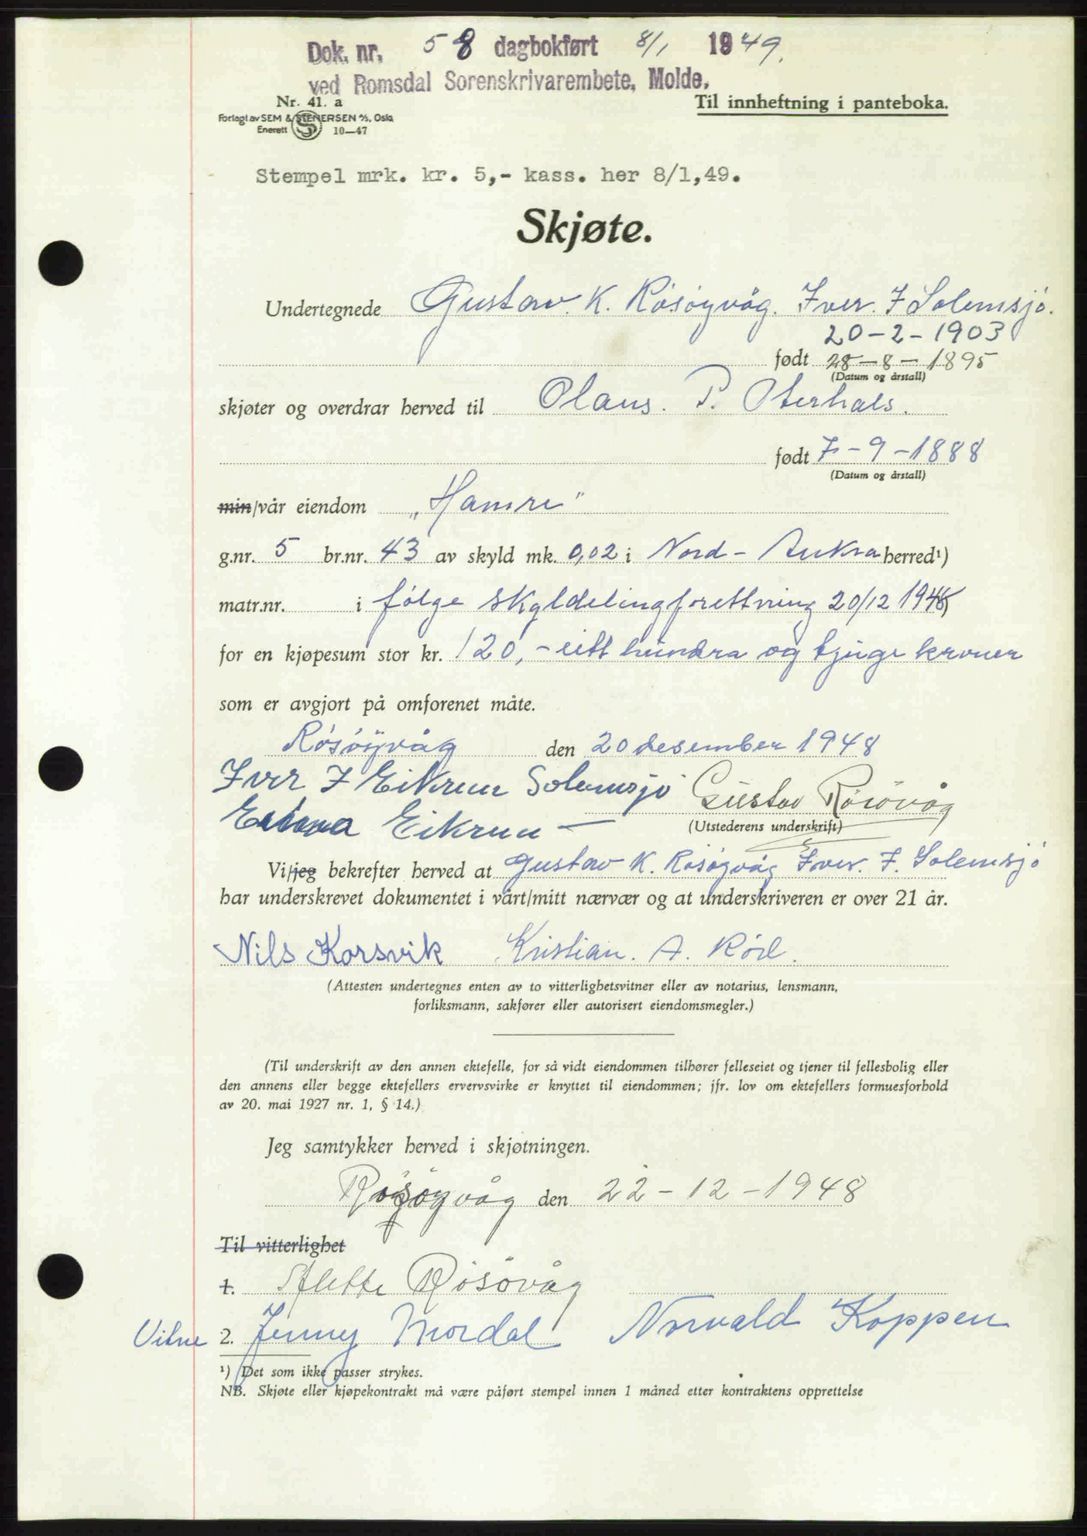 Dok. nr. 58 dagbokført 8/1 1949.
ved Romsdal Sorenskrivarembete, Molde.
Nr. 41. a
Til innheftning i panteboka.
Forlagt av SEM & STENERSEN A/S, Oslo
Enerett S 10—47
Stempel mrk. kr. 5,- kass. her 8/1,49.
Skjøte.
Undertegnede Gustav. K. Røsøyvåg. Iver. J Solemsjø.
20-2-1903
født 28-8-1895
(Datum og årstall)
skjøter og overdrar herved til Olaus. P. Oterhals.
født 7-9-1888
(Datum og årstall)
min/vår eiendom „Hamre"
g.nr. 5 br.nr. 43 av skyld mk. 0,02 i Nord-Aukra herred¹)
matr.nr. i følge skyldelingforettning 20/12 1948
for en kjøpesum stor kr. 120,- eitt hundra og tjuge kroner
som er avgjort på omforenet måte.
Røsøyvåg den 20 desember 1948
Iver J Eikrem Solemsjø Gustav Røsøvåg
Eikrem
(Utstederens underskrift)
Vi/jeg bekrefter herved at Gustav K. Røsøyvåg Iver. J. Solemsjø
har underskrevet dokumentet i vårt/mitt nærvær og at underskriveren er over 21 år.
Nils Korsvik Kristian. A. Rød.
(Attesten undertegnes enten av to vitterlighetsvitner eller av notarius, lensmann,
forliksmann, sakfører eller autorisert eiendomsmegler.)
(Til underskrift av den annen ektefelle, for så vidt eiendommen tilhører felleseiet og tjener til fellesbolig eller
den annens eller begge ektefellers ervervsvirke er knyttet til eiendommen; jfr. lov om ektefellers formuesforhold
av 20. mai 1927 nr. 1, § 14.)
Jeg samtykker herved i skjøtningen.
Røsøyvåg den 22-12-1948
Til vitterlighet
1. Alette Røsøvåg
Vitne 2. Jenny Mordal Norvald Koppen
¹) Det som ikke passer strykes.
NB. Skjøte eller kjøpekontrakt må være påført stempel innen 1 måned etter kontraktens opprettelse